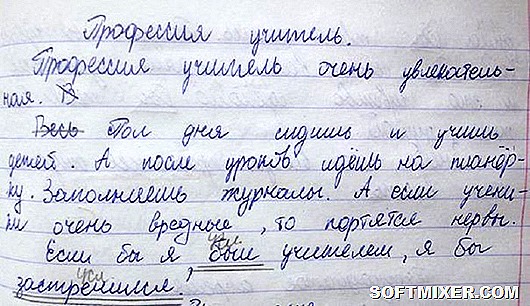 Профессия учитель.
Профессия учитель очень увлекатель-
ная. В
Весь Пол дня сидишь и учишь
детей. А после уроков идёшь на планёр-
ку. Заполняешь журналы. А если учени-
ки очень вредные, то портятся нервы.
усл.
Если бы я был учителем, я бы
усл
застрелился,
SOFTMIXER.COM